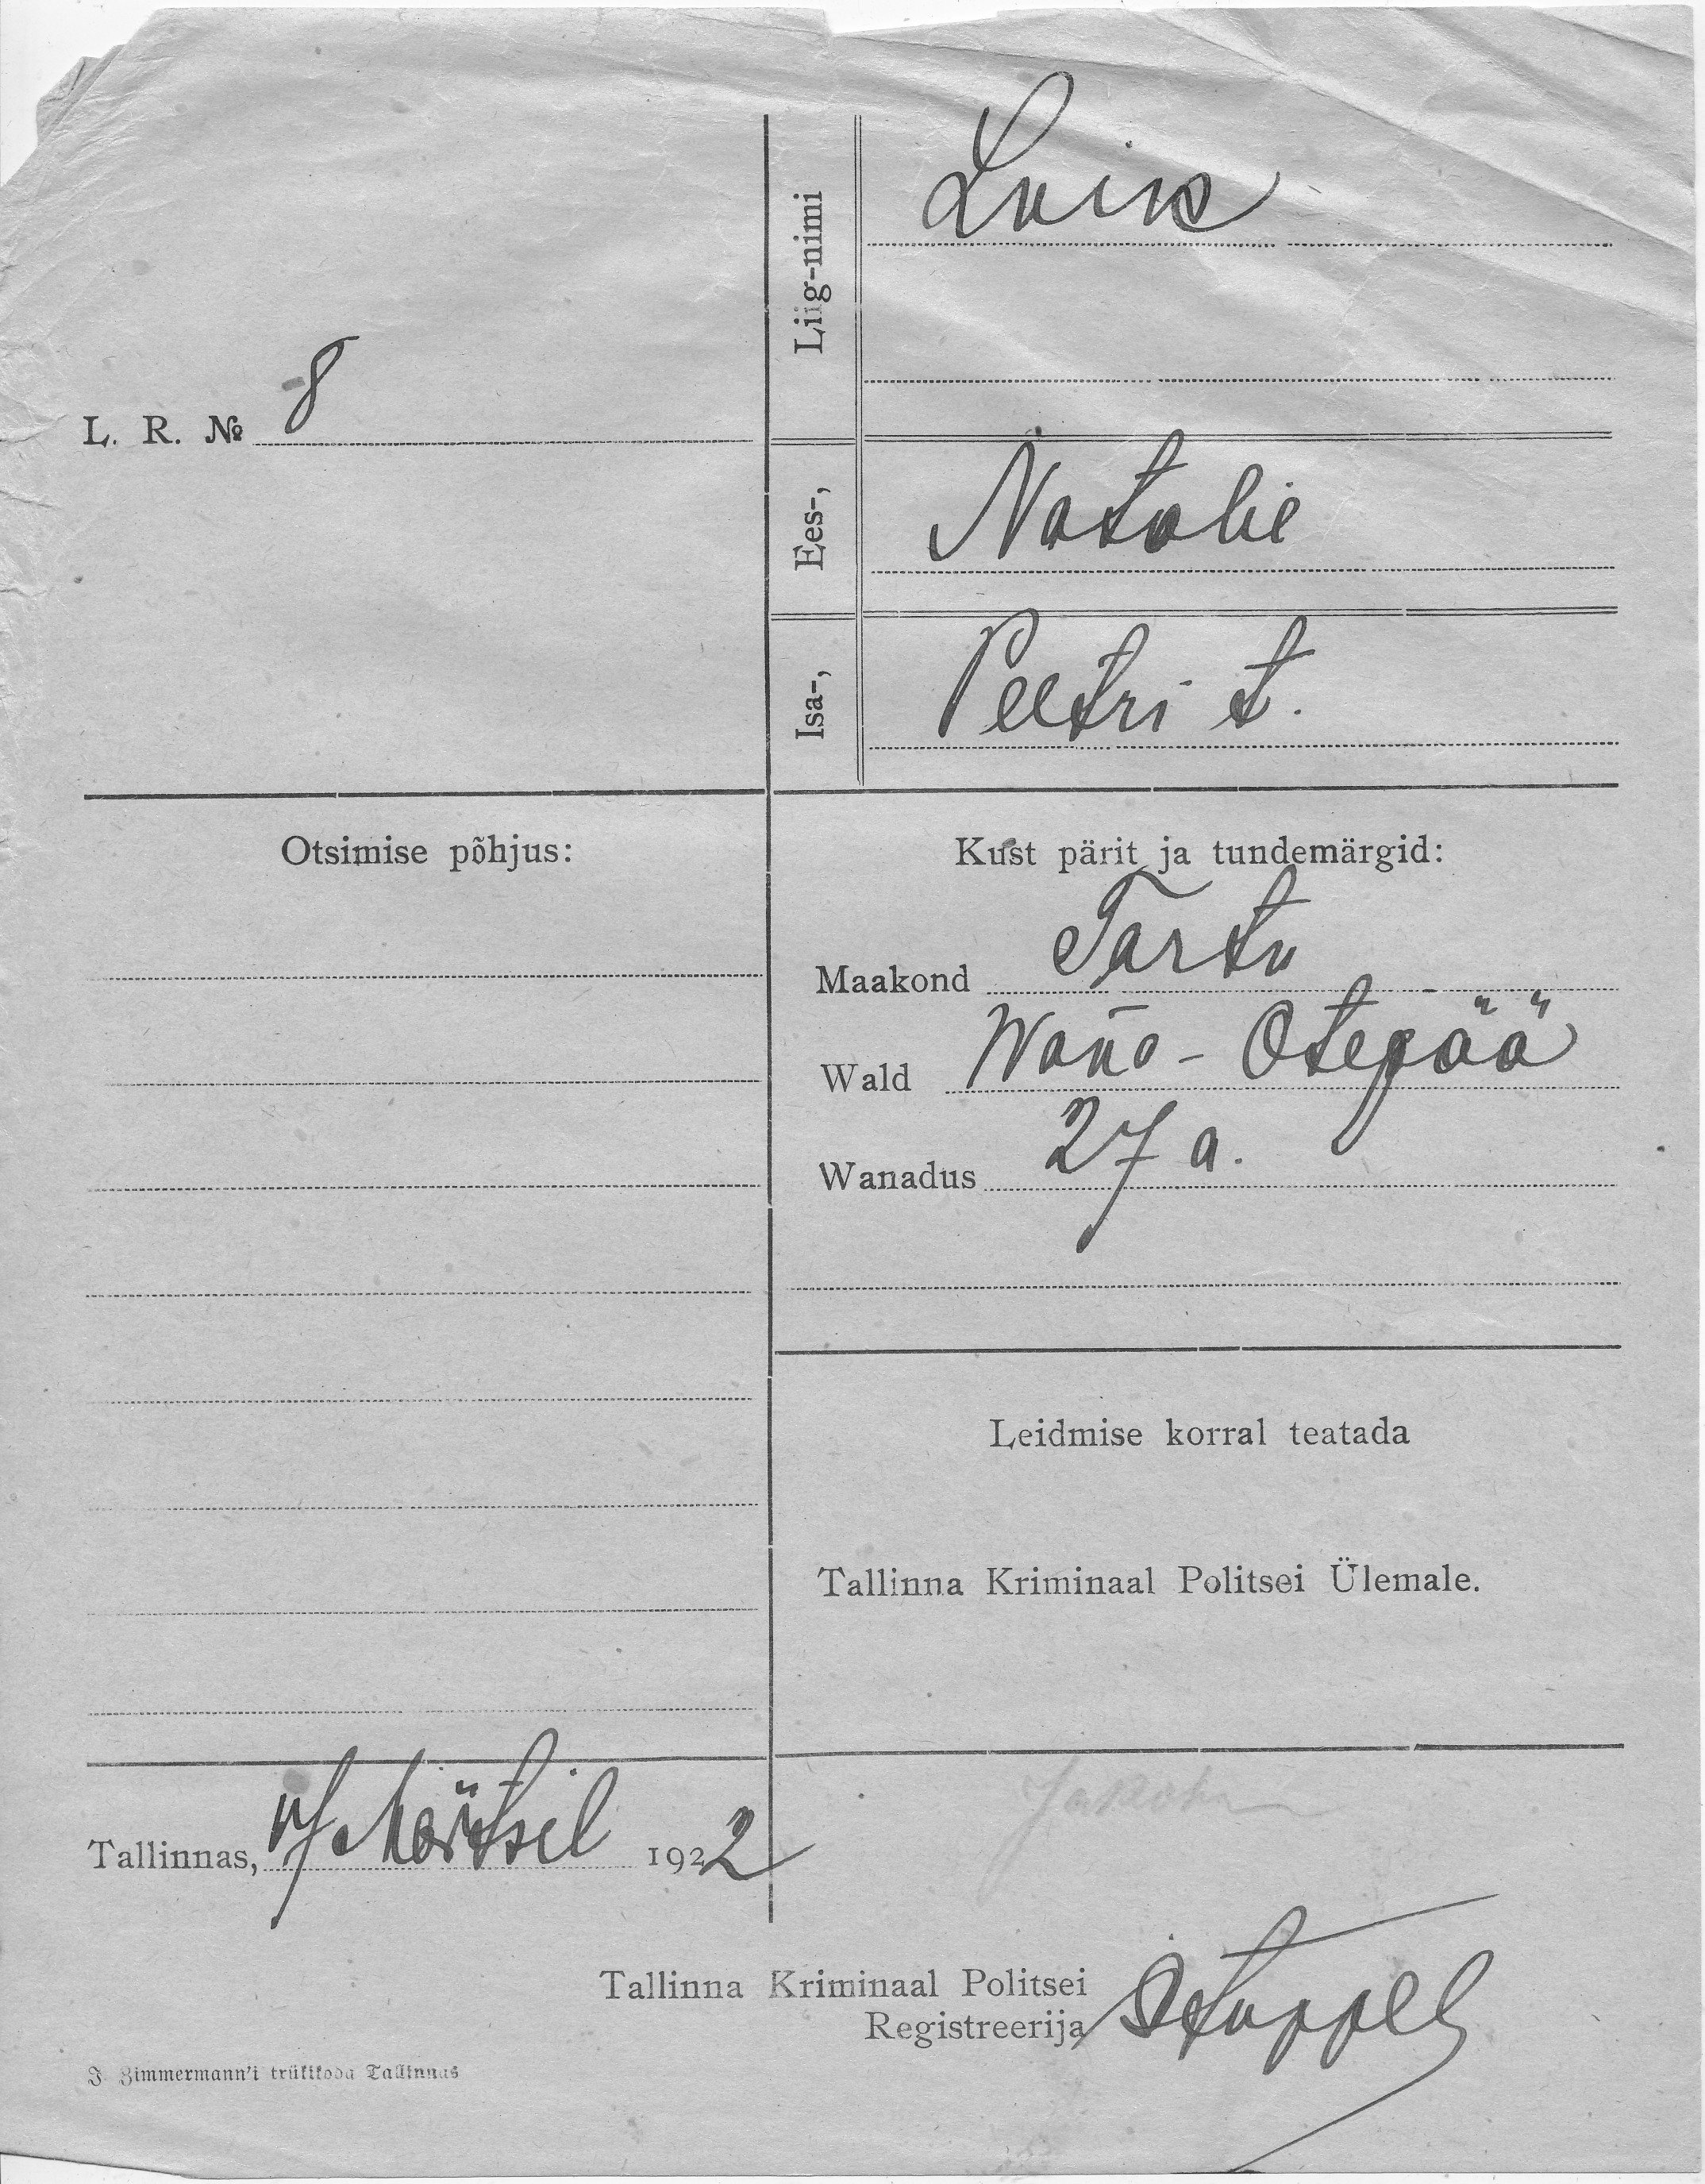 Liig-nimi
L. R. № 8
Ees-, Natalie
Isa-, Peetri t.
Otsimise põhjus:
Kust pärit ja tundemärgid:
Maakond Tartu
Wald Wana-Otepää
Wanadus 27 a.
Leidmise korral teatada
Tallinna Kriminaal Politsei Ülemale.
Tallinnas, Märtsil 1922
Tallinna Kriminaal Politsei
Registreerija
J. Zimmermann'i trükikoda Tallinnas